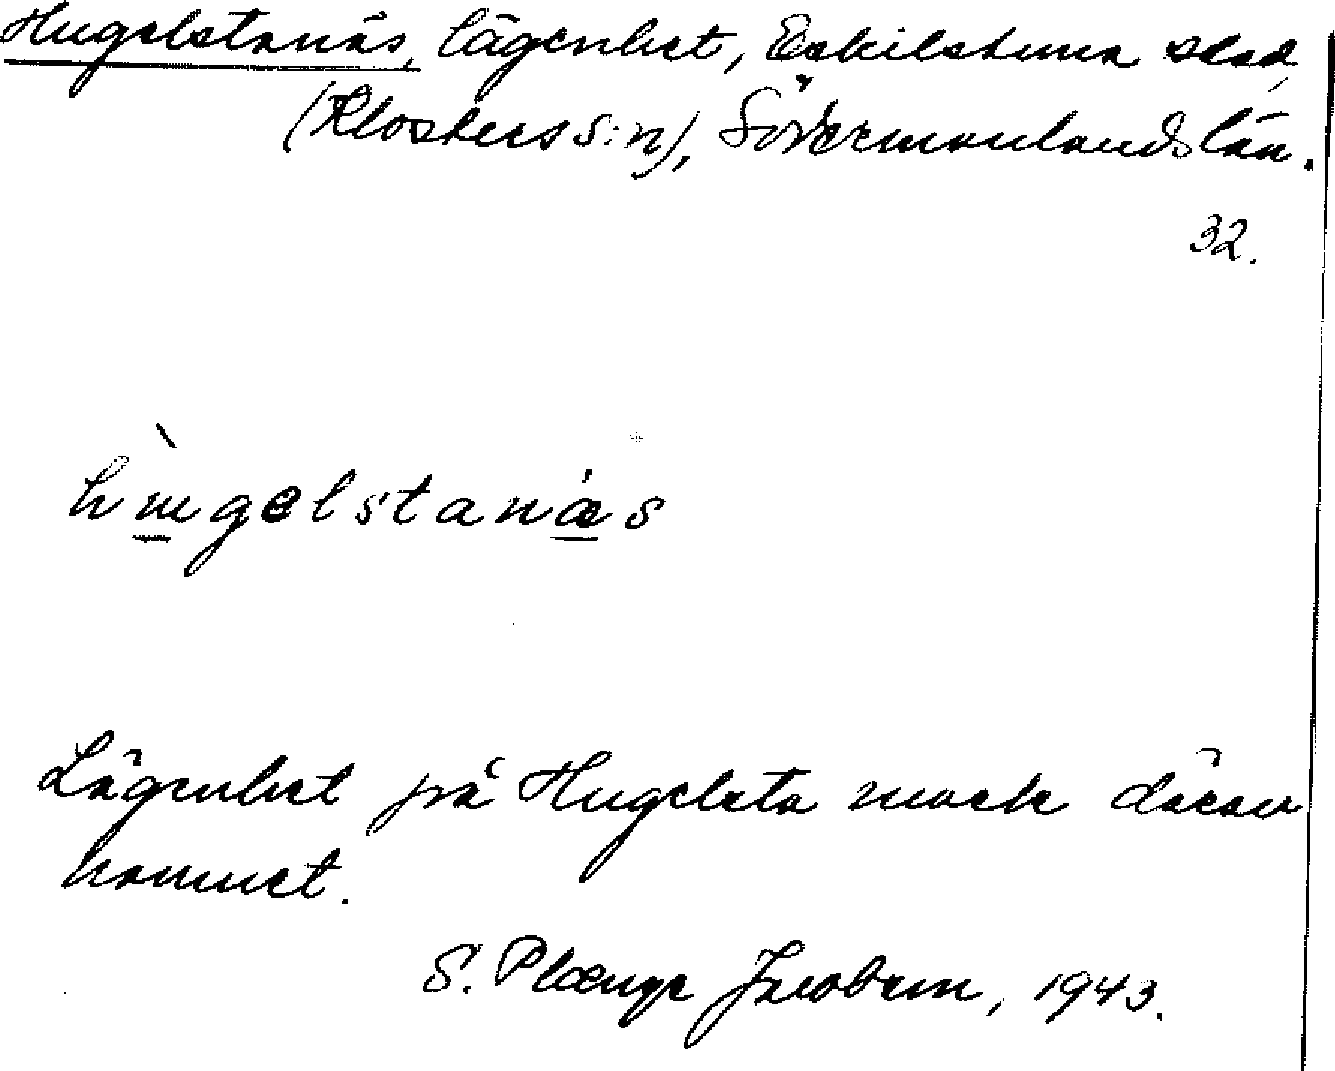 Hugelstanäs, lägenhet, Eskilstuna stad,
(Klosters s:n), Södermanlands län.
32.
hùgelstanä́s
Lägenhet på Hugelsta mark därav
namnet.
S. Plænge Jacobson, 1943.